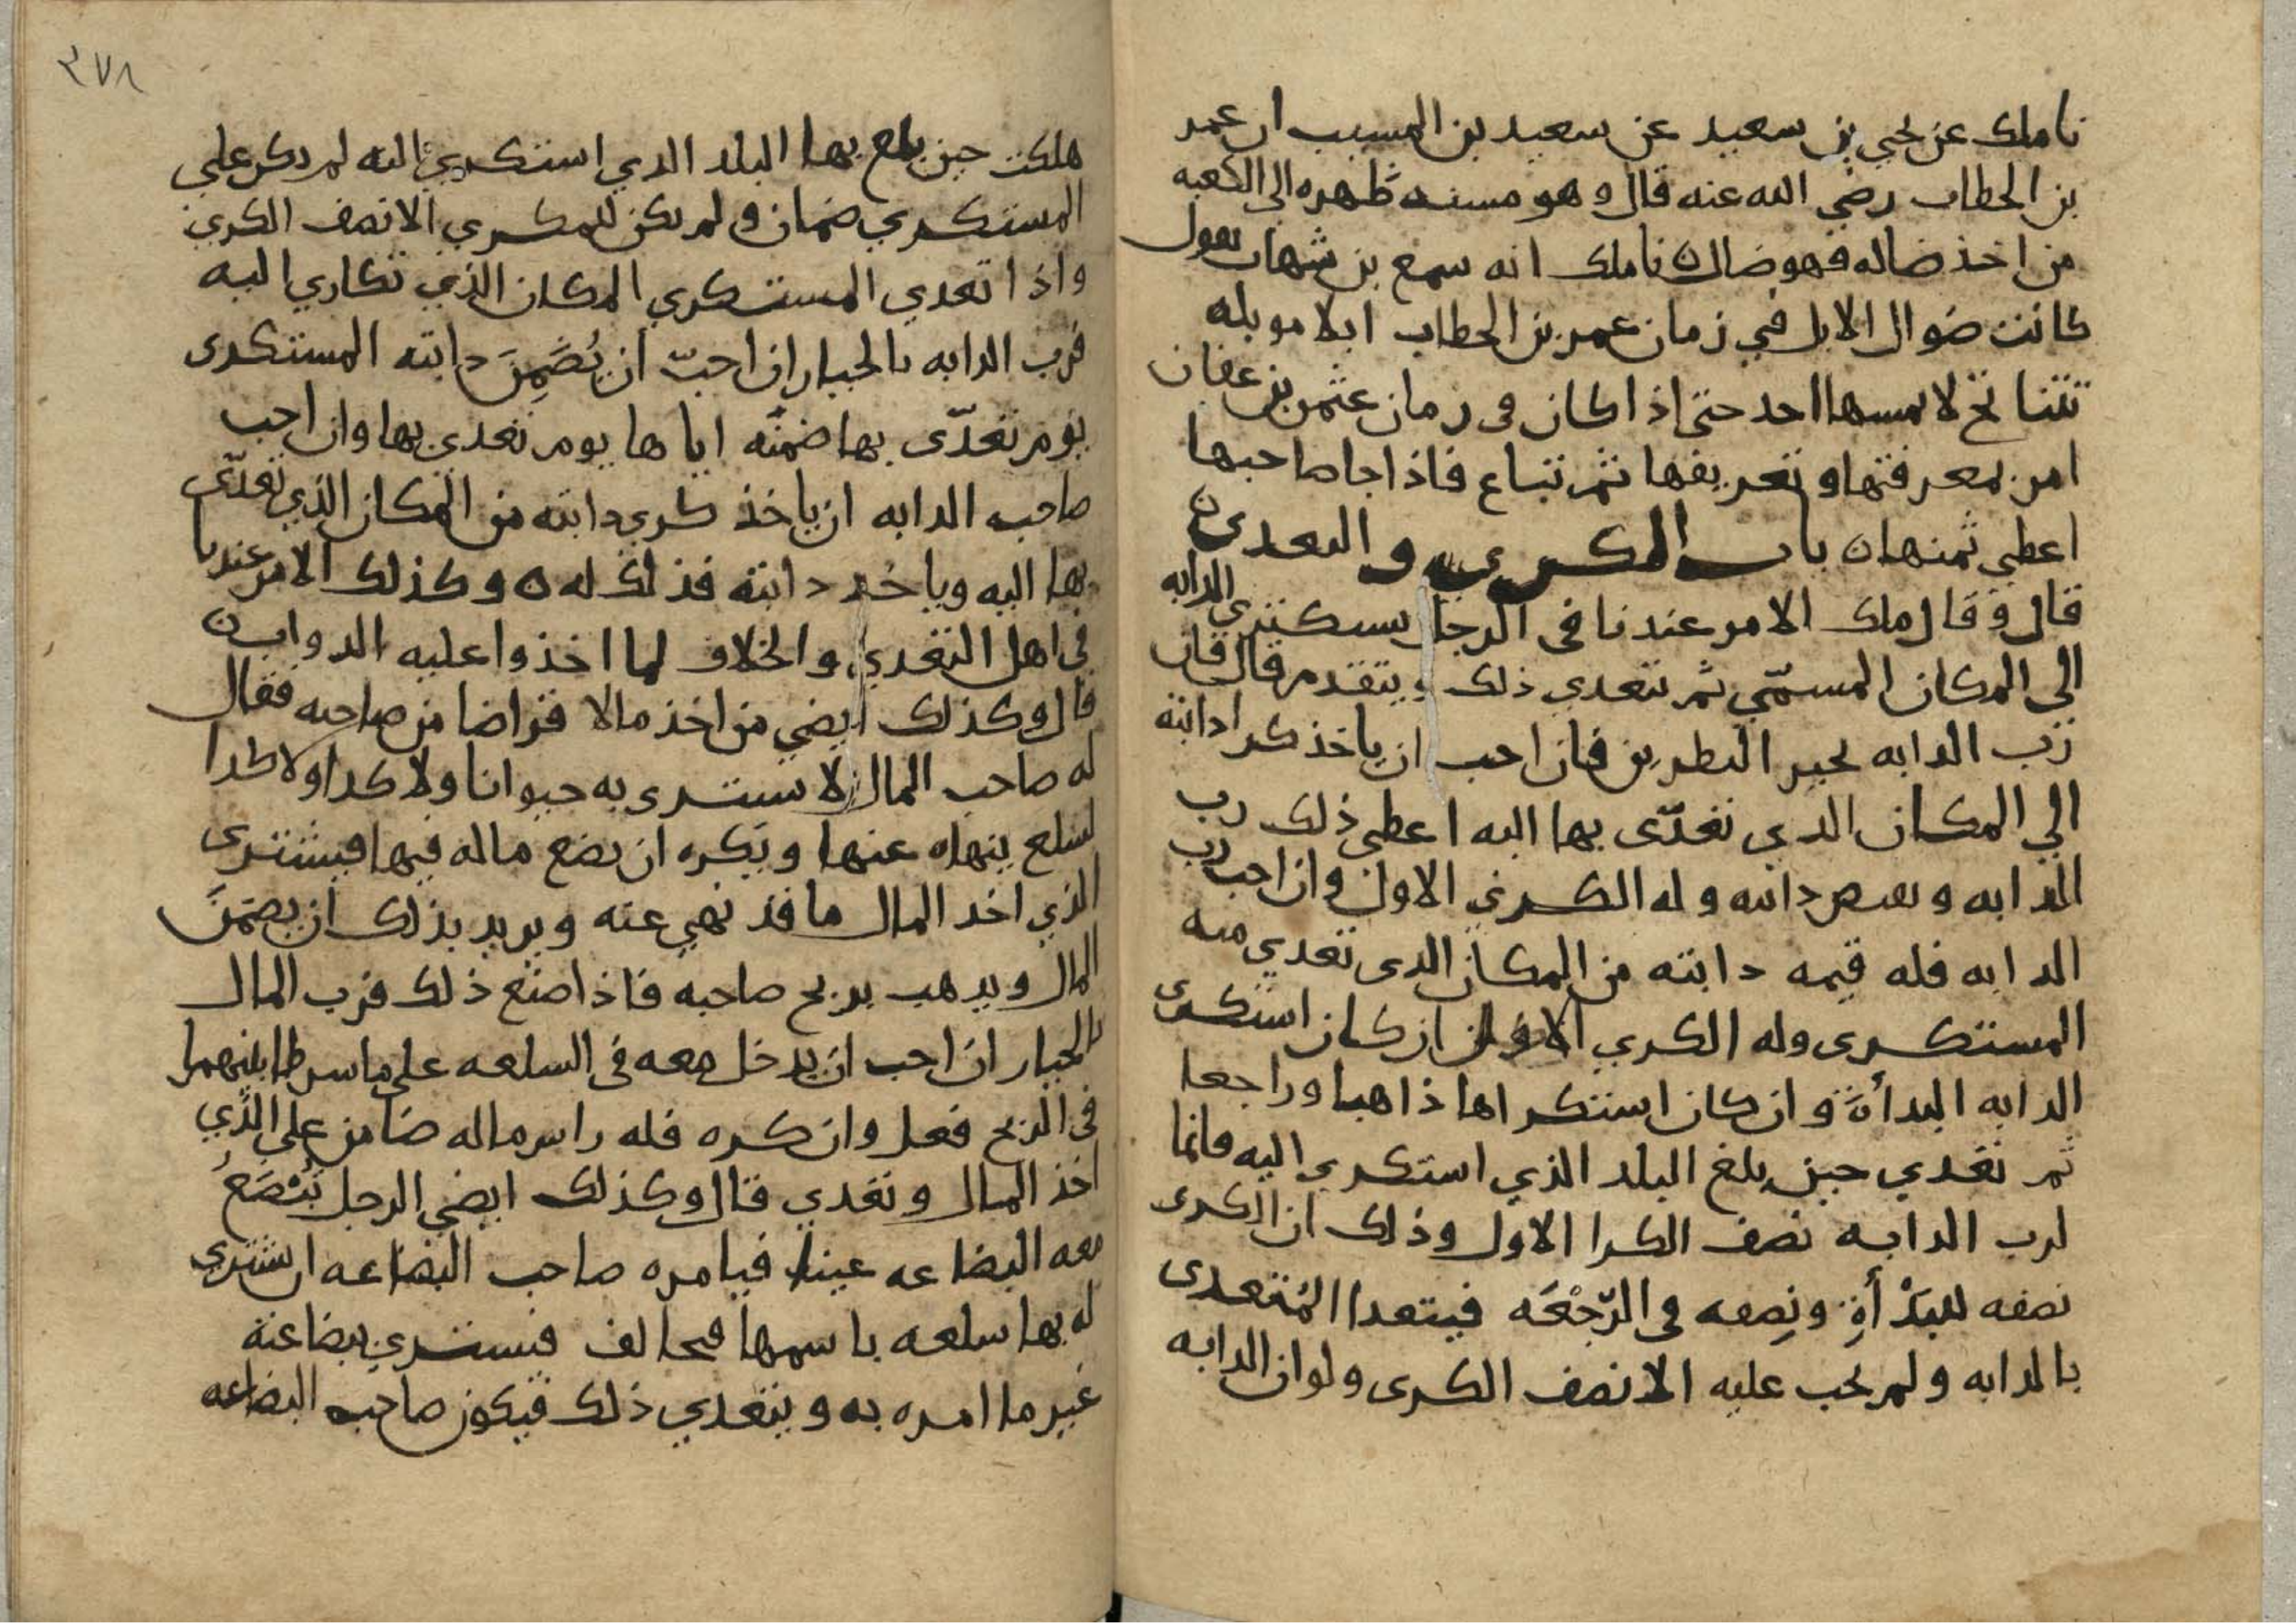 نا ملك عن يحيي بن سعيد عن سعيد بن المسيب ان عمر
بن الخطاب رضي الله عنه قال وهو مسند ظهره الى الكعبه
من اخذ ضاله فهو ضال ه نا ملك انه سمع بن شهاب يقول
كانت ضوال الابل في زمان عمر بن الخطاب ابلا موبله
تتناتج لا يمسها احد حتى اذا كان في زمان عثمن بن عفان
امر بمعرفتها وتعريفها ثم تباع فاذا جا صاحبها
اعطي ثمنها ه باب الكري والتعدي ه
قال وقال ملك الامر عندنا في الرجل يستكتري الدابه
الى المكان المسمّي ثم يتعدي ذلك ويتقدم قال فان
رب الدابه يخير النظرين فان احب ان ياخذ كرا دابته
الي المكان الدي تعدّى بها اليه اعطي ذلك رب
الدابه ويقبض دابته وله الكري الاول وان احب رب
الدابه فله قيمه دابته من المكان الدى تعدي منه
المستكرى وله الكري الاول ان كان استكرى
الدابه البدأة وان كان استكراها ذاهبا وراجعا
ثم تعدي حين بلغ البلد الذي استكري اليه فانما
لرب الدابه نصف الكرا الاول وذلك ان الكرى
نصفه للبَدْأةِ ونِصفه في الرّجْعَه فيتعدا المُتعدى
بالدابه ولم يجب عليه الا نصف الكرى ولو ان الدابه
٣٧٨
هلكت حين بلغ بها البلد الدي استكري اليه لم يكن علي
المستكري ضمان ولم يكن للمكري الا نصف الكري
واذا تعدي المستكري المكان الذي تكاري اليه
فرب الدابه بالخيار ان احبّ ان يُضَمِنَ دابته المستكرى
يوم تعدّى بها ضمنّه اياها يوم تعدي بها وان احب
صاحب الدابه ان ياخذ كري دابته من المكان الذي تعدّى
بها اليه وياخذ دابته فذلك له ه وكذلك الامر عندنا
في اهل التعدي والخلاف لما اخذوا عليه الدواب ه
قال وكذلك ايضي من اخذ مالا قراضا من صاحبه فقال
له صاحب المال لا تشترى به حيوانا ولا كدا ولا كدا
لسلع ينهاه عنها ويكره ان يضع ماله فيها فيشترى
الذي اخد المال ما قد نهي عنه ويريد بذلك ان يضمَنَ
المال ويدهب بربح صاحبه فاذا صنع ذلك فرب المال
بالخيار ان احب ان يدخل معه في السلعه على ما شرطا بينهما
في الربح فعل وان كره فله راس ماله ضامن على الذي
اخذ المال وتعدي قال وكذلك ايضي الرجل يُبْضَعُ
معه البضاعه عينا فيامره صاحب البضاعه ان يشترى
له بها سلعه باسمها فيخالف فيشتري ببضاعته
غير ما امره به ويتعدي ذلك فيكون صاحب البضاعه